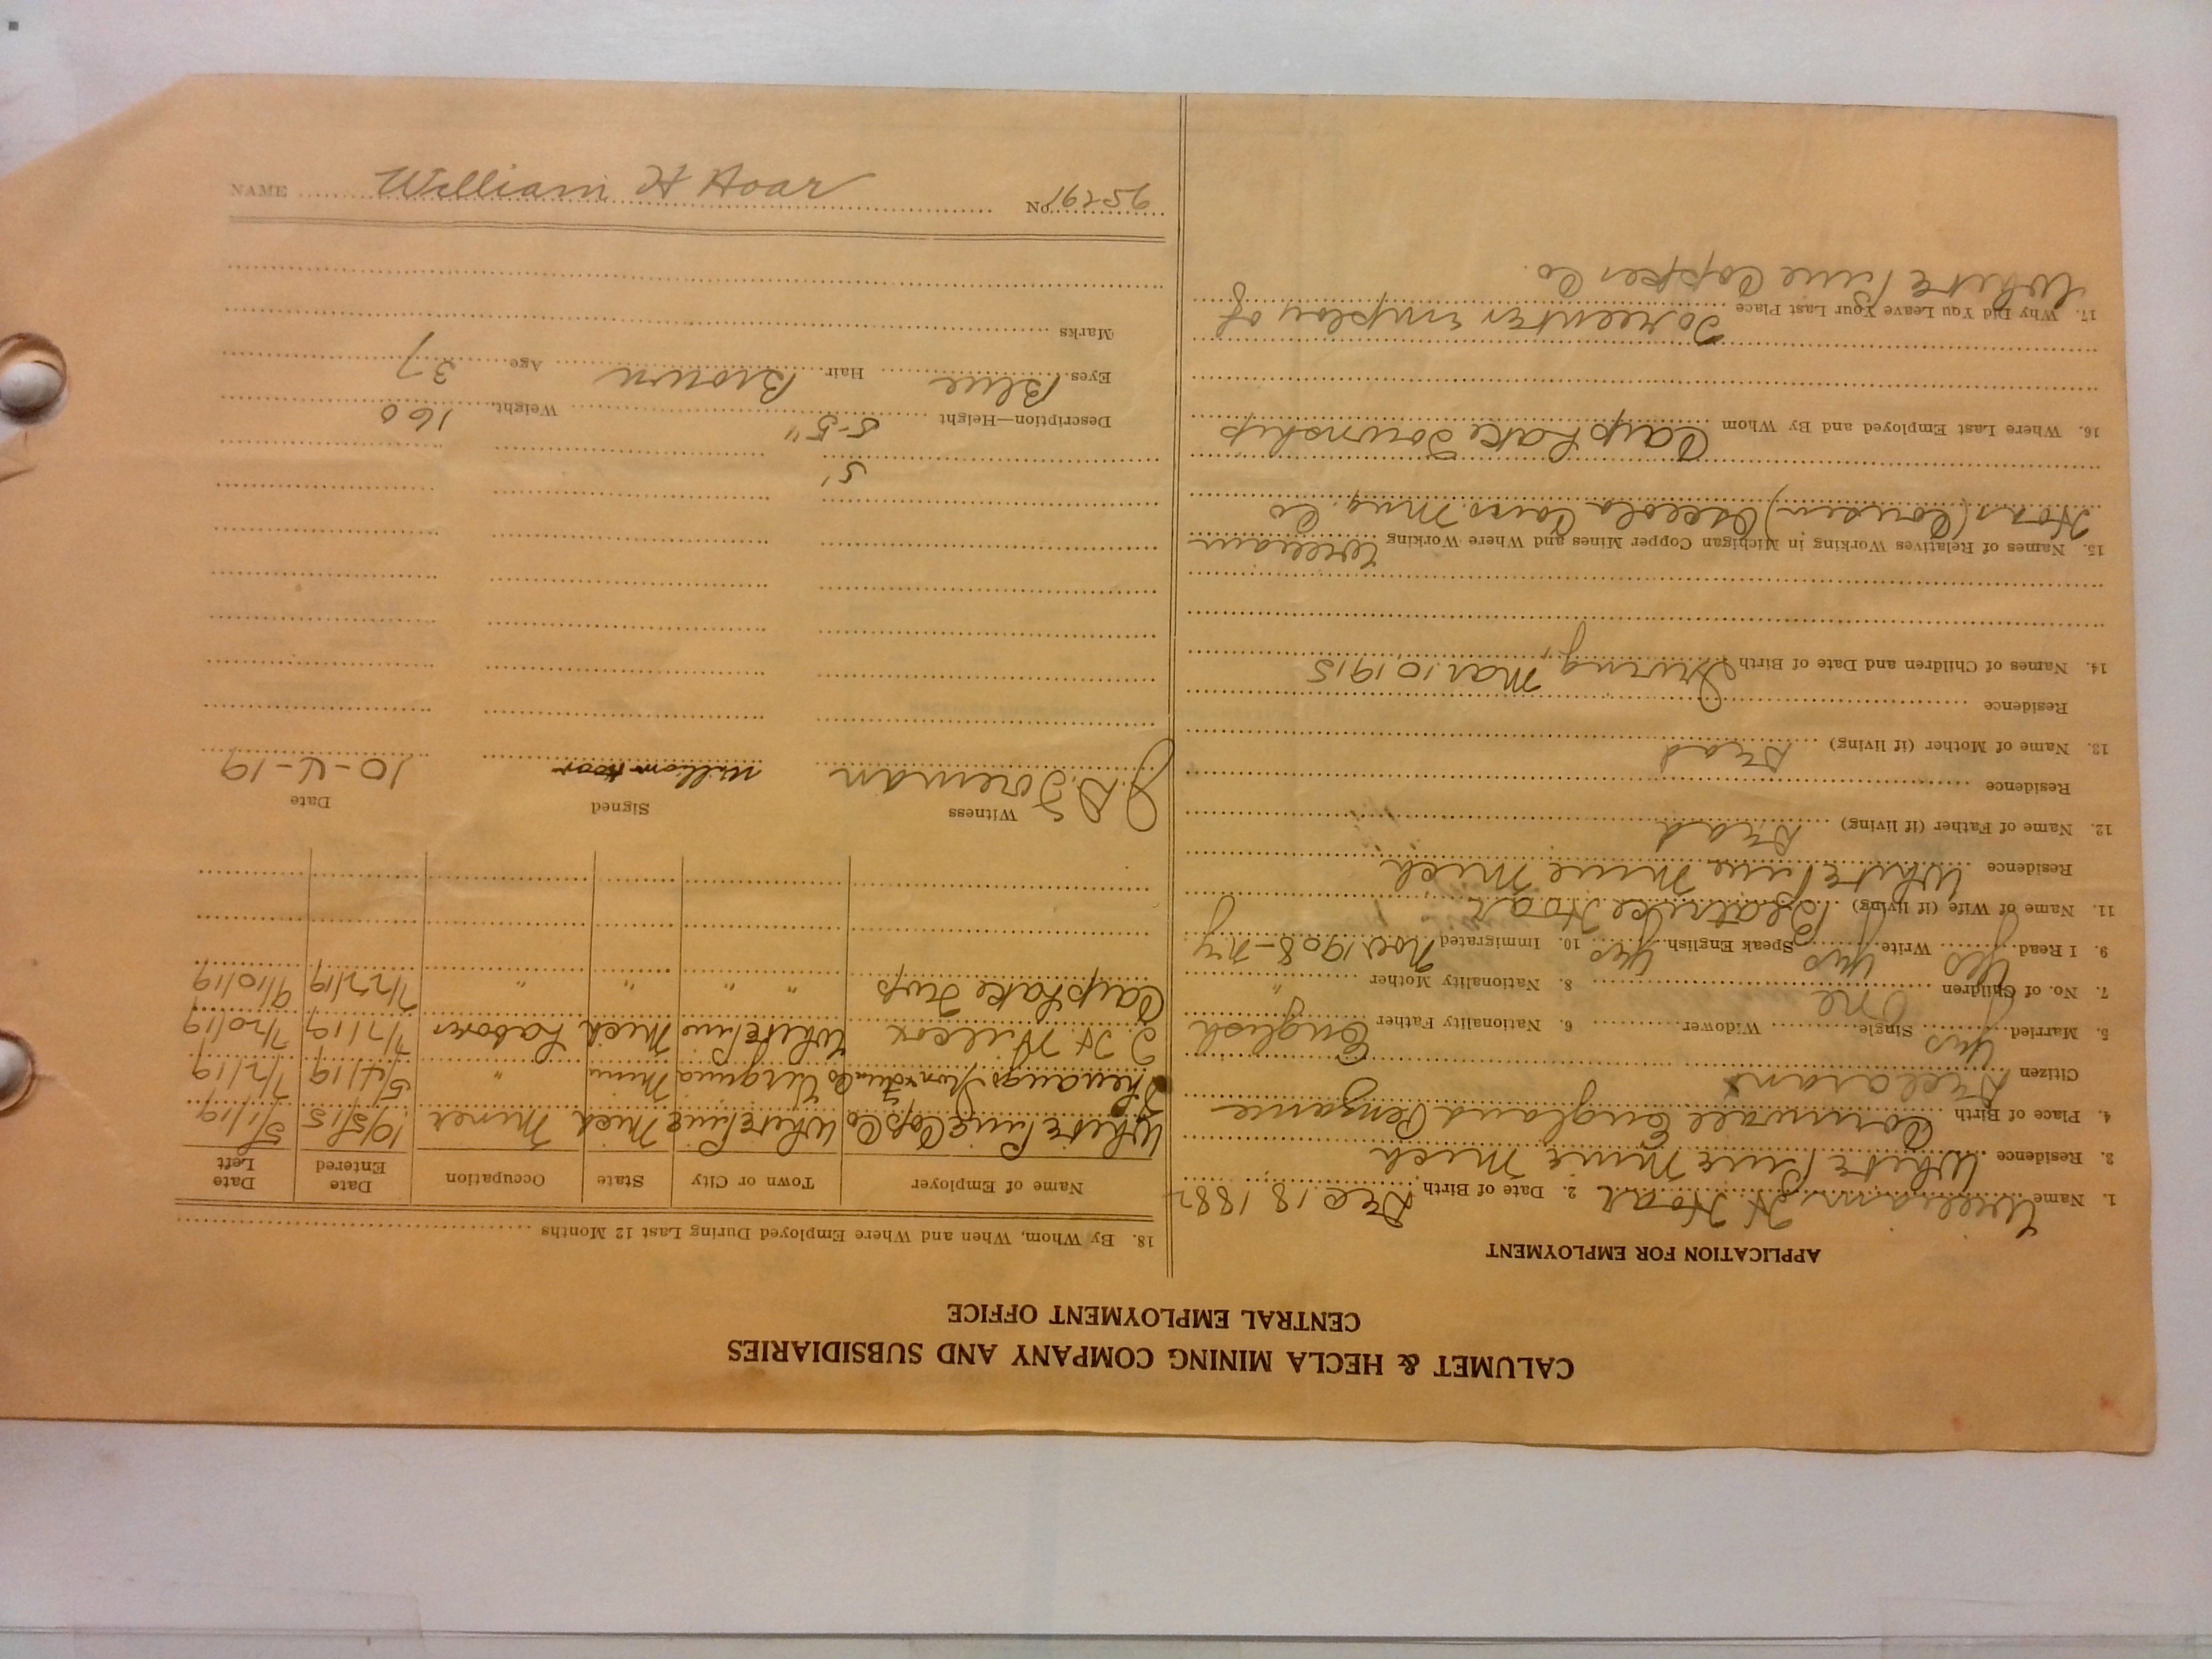 CALUMET & HECLA MINING COMPANY AND SUBSIDIARIES
CENTRAL EMPLOYMENT OFFICE
APPLICATION FOR EMPLOYMENT
1. Name William H Hoar 2. Date of Birth Dec 18 1882
3. Residence White Pine Mine Mich
4. Place of Birth Cornwall England Penzance
Citizen Declarant
5. Married yes Single Widower 6. Nationality Father English
7. No. of Children One 8. Nationality Mother "
9. I Read yes Write yes Speak English yes 10. Immigrated Nov 1908 - NY
11. Name of Wife (if living) Beatrice Hoar
Residence White Pine Mine Mich
12. Name of Father (if living) Dead
Residence
13. Name of Mother (if living) Dead
Residence
14. Names of Children and Date of Birth Irving, Mar. 10, 1915
15. Names of Relatives Working in Michigan Copper Mines and Where Working William
Hoar (Cousin) Osceola Cons. Mng. Co
16. Where Last Employed and By Whom Carp Lake Township
17. Why Did You Leave Your Last Place To reenter employ of
White Pine Copper Co.
18. By Whom, When and Where Employed During Last 12 Months
Name of Employer Town or City State Occupation Date Entered Date Left
White Pine Cop Co White Pine Mich Miner 10/5/15 5/1/19
Iron Virginia Minn " 5/4/19 7/2/19
J H Wilcox White Pine Mich Laborer 7/7/19 7/20/19
Carp Lake Twp " " " 7/22/19 9/10/19
Witness Signed Date
J.D. Foreman William Hoar 10-4-19
5'
Description—Height 5-5" Weight 160
Eyes Blue Hair Brown Age 37
Marks
NAME William H Hoar
NO